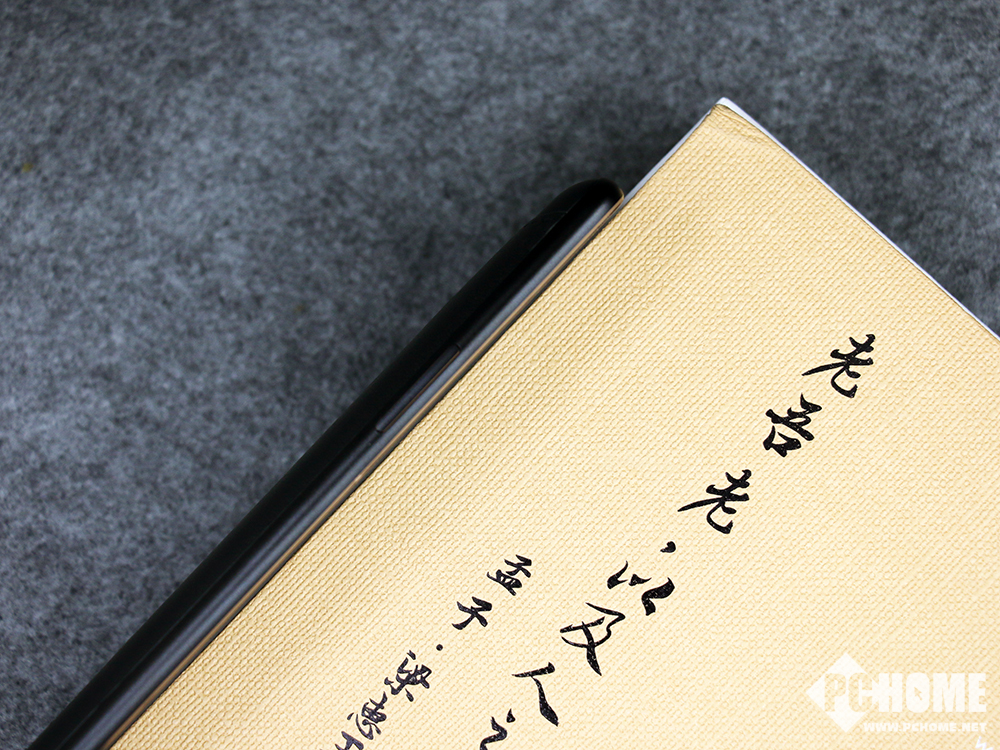 老吾老，以及人
孟子·梁惠
PCHOME
WWW.PCHOME.NET